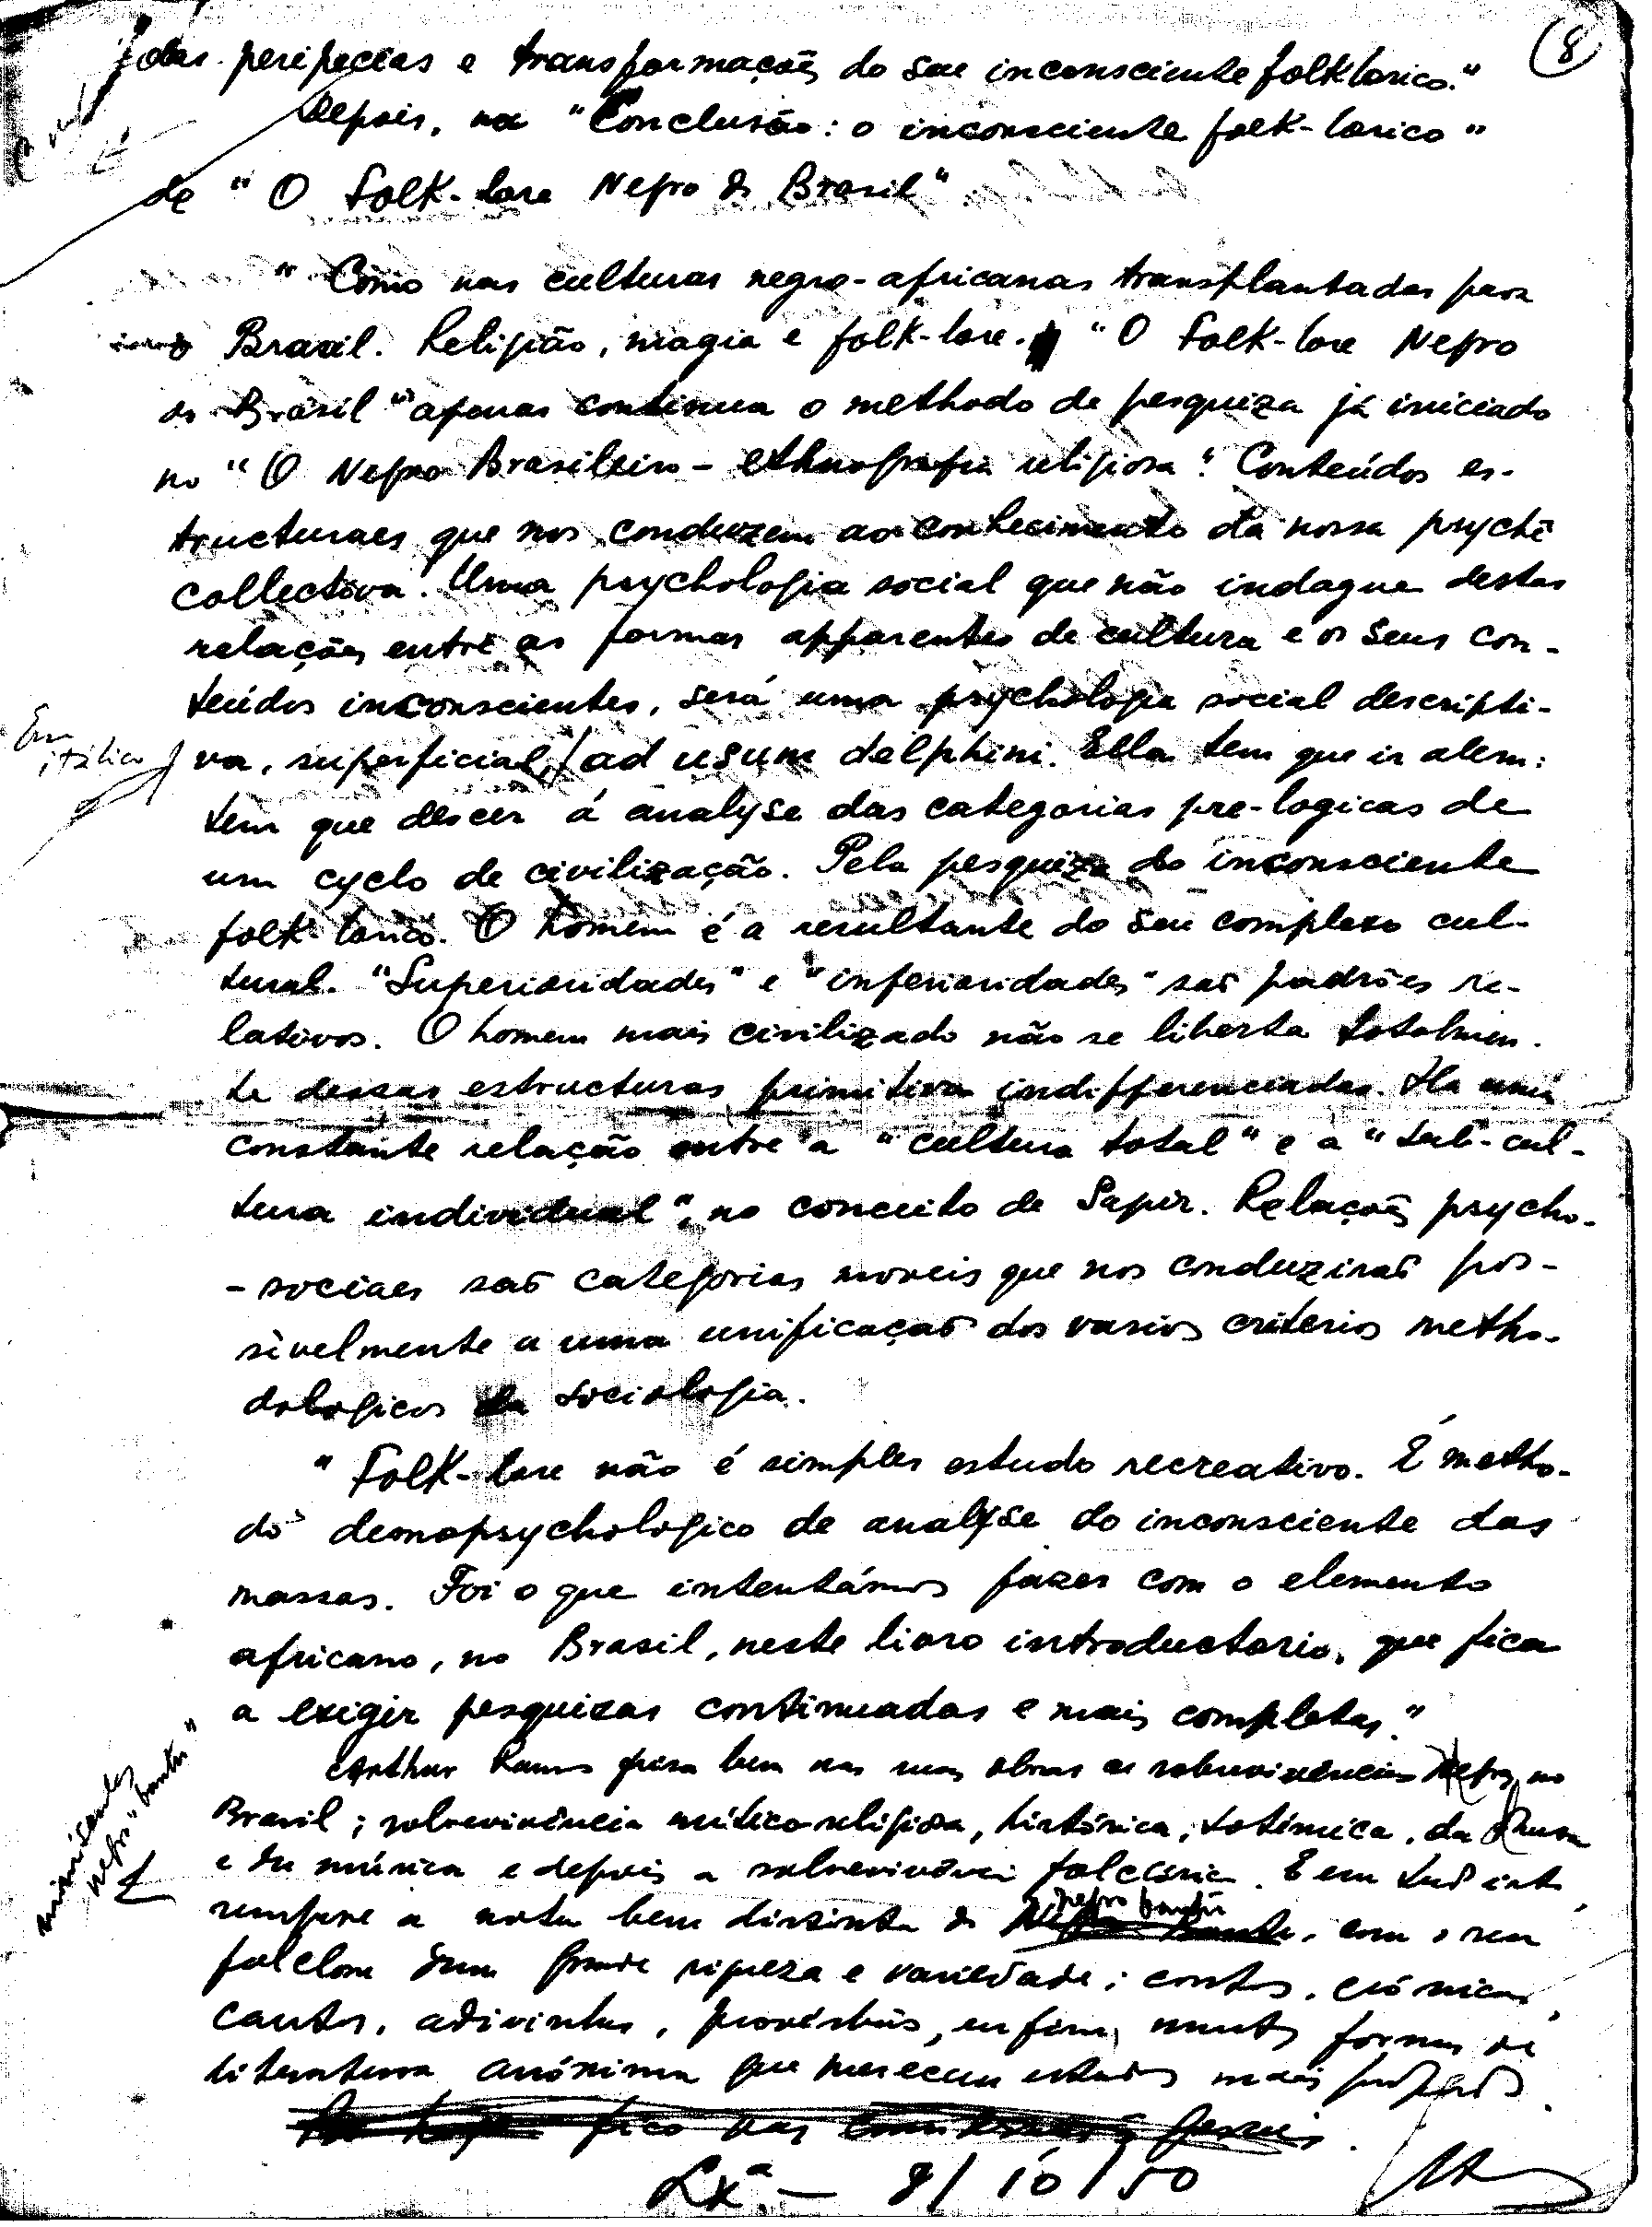 8
das peripecias e transformações do seu inconsciente folklorico."
Depois, na "Conclusão: o inconsciente folk-lorico"
de "O Folk-lore Negro do Brasil".
"Como nas culturas negro-africanas transplantadas para
o Brasil. Religião, magia e folk-lore. "O Folk-lore Negro
do Brasil" apenas continua o methodo de pesquiza já iniciado
no "O Negro Brasileiro - ethnografia religiosa". Conteúdos es-
tructuraes que nos conduzem ao conhecimento da nossa psychê
collectiva. Uma psychologia social que não indague destas
relações entre as formas apparentes de cultura e os seus con-
teúdos inconscientes, será uma psychologia social descripti-
Em
itálico
va, superficial, ad usum delphini. Ella tem que ir alem:
tem que descer á analyse das categorias pre-logicas de
um cyclo de civilização. Pela pesquiza do inconsciente
folk-lorico. O homem é a resultante do seu complexo cul-
tural. "Superioridades" e "inferioridades" são padrões re-
lativos. O homem mais civilizado não se liberta totalmen-
te dessas estructuras primitivas indifferenciadas. Ha uma
constante relação entre a "cultura total" e a "sub-cul-
tura individual", no conceito de Sapir. Relações psycho-
-sociaes são categorias moveis que nos conduzirão pos-
sivelmente a uma unificação dos varios criterios metho-
dologicos da sociologia.
"Folk-lore não é simples estudo recreativo. É metho-
do demopsychologico de analyse do inconsciente das
massas. Foi o que intentámos fazer com o elemento
africano, no Brasil, neste livro introductorio, que fica
a exigir pesquizas continuadas e mais completas."
Arthur Ramos frisa bem nas suas obras as sobrevivências Negras no
Brasil; sobrevivência mítico-religiosa, histórica, totémica, da dança
e da música e depois a sobrevivência folclórica. E em tudo
minúsculas
negro "bantu"
sempre a nota bem distinta do negro bantu, com o seu
folclore duma grande riqueza e variedade; contos, crónicas,
cantos, adivinhas, provérbios, enfim, muitas formas de
literatura anónima que merecem estudos mais profundos.
fico nas considerações gerais.
Lxª - 8/10/50